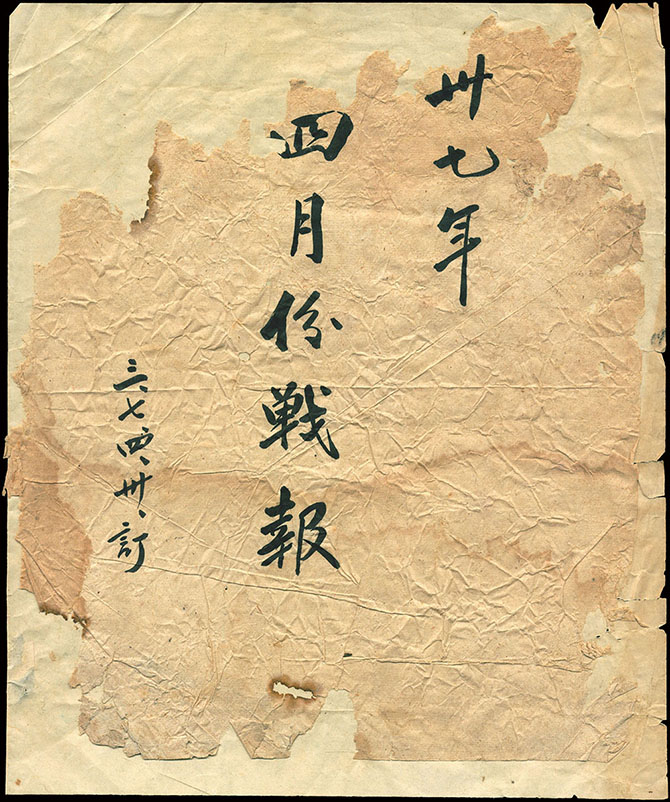 卅七年
四月份戦報
三、七、四、卅、訂